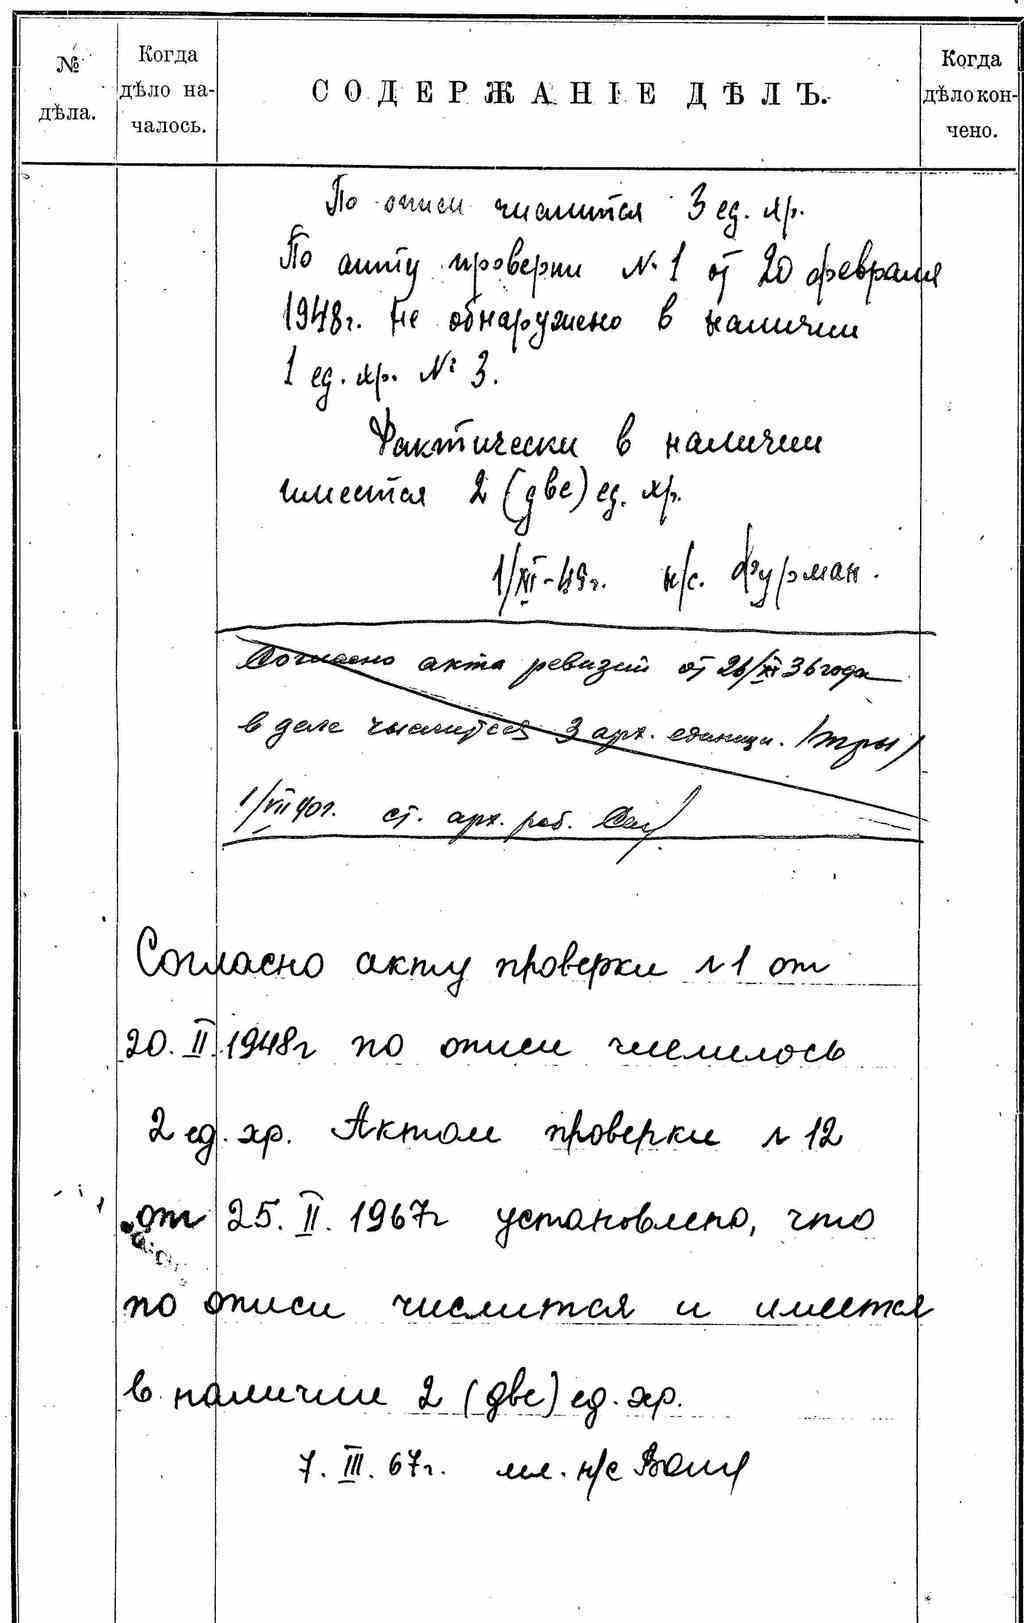 № дѣла.
Когда дѣло на-
чалось.
СОДЕРЖАНІЕ ДѢЛЪ.
Когда дѣло кон-
чено.
По описи числится 3 ед. хр.
По акту проверки №1 от 20 февраля
1948г. не обнаружено в наличии
1 ед. хр. № 3.
Фактически в наличии
имеется 2 (две) ед. хр.
н/с. Фурман.
Согласно акта ревизий от 26/XI 36 года
в деле числится 3 арх. единицы. /три/
1/VII 40г. ст. арх. раб.
Согласно акту проверки №1 от
20. II. 1948г по описи числилось
2 ед. хр. Актом проверки №12
от 25. II. 1967г установлено, что
по описи числится и имеется
в наличии 2 (две) ед. хр.
7. III. 67г. мл. н/с